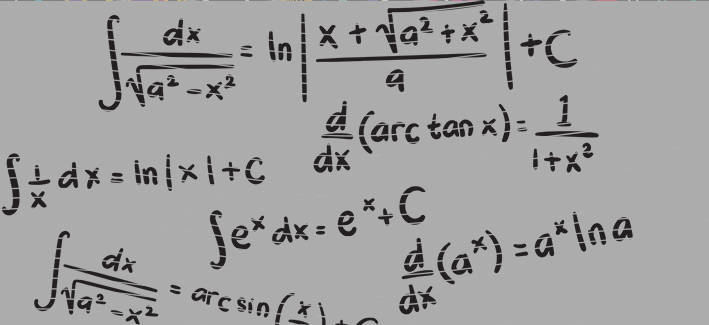 ∫ dx/√(a² - x²) = ln | (x + √(a² + x²))/a | + C
d/dx (arc tan x) = 1/(1 + x²)
∫ 1/x dx = ln |x| + C
∫ eˣ dx = eˣ + C
d/dx (aˣ) = aˣ ln a
∫ dx/√(a² - x²) = arc sin (x/